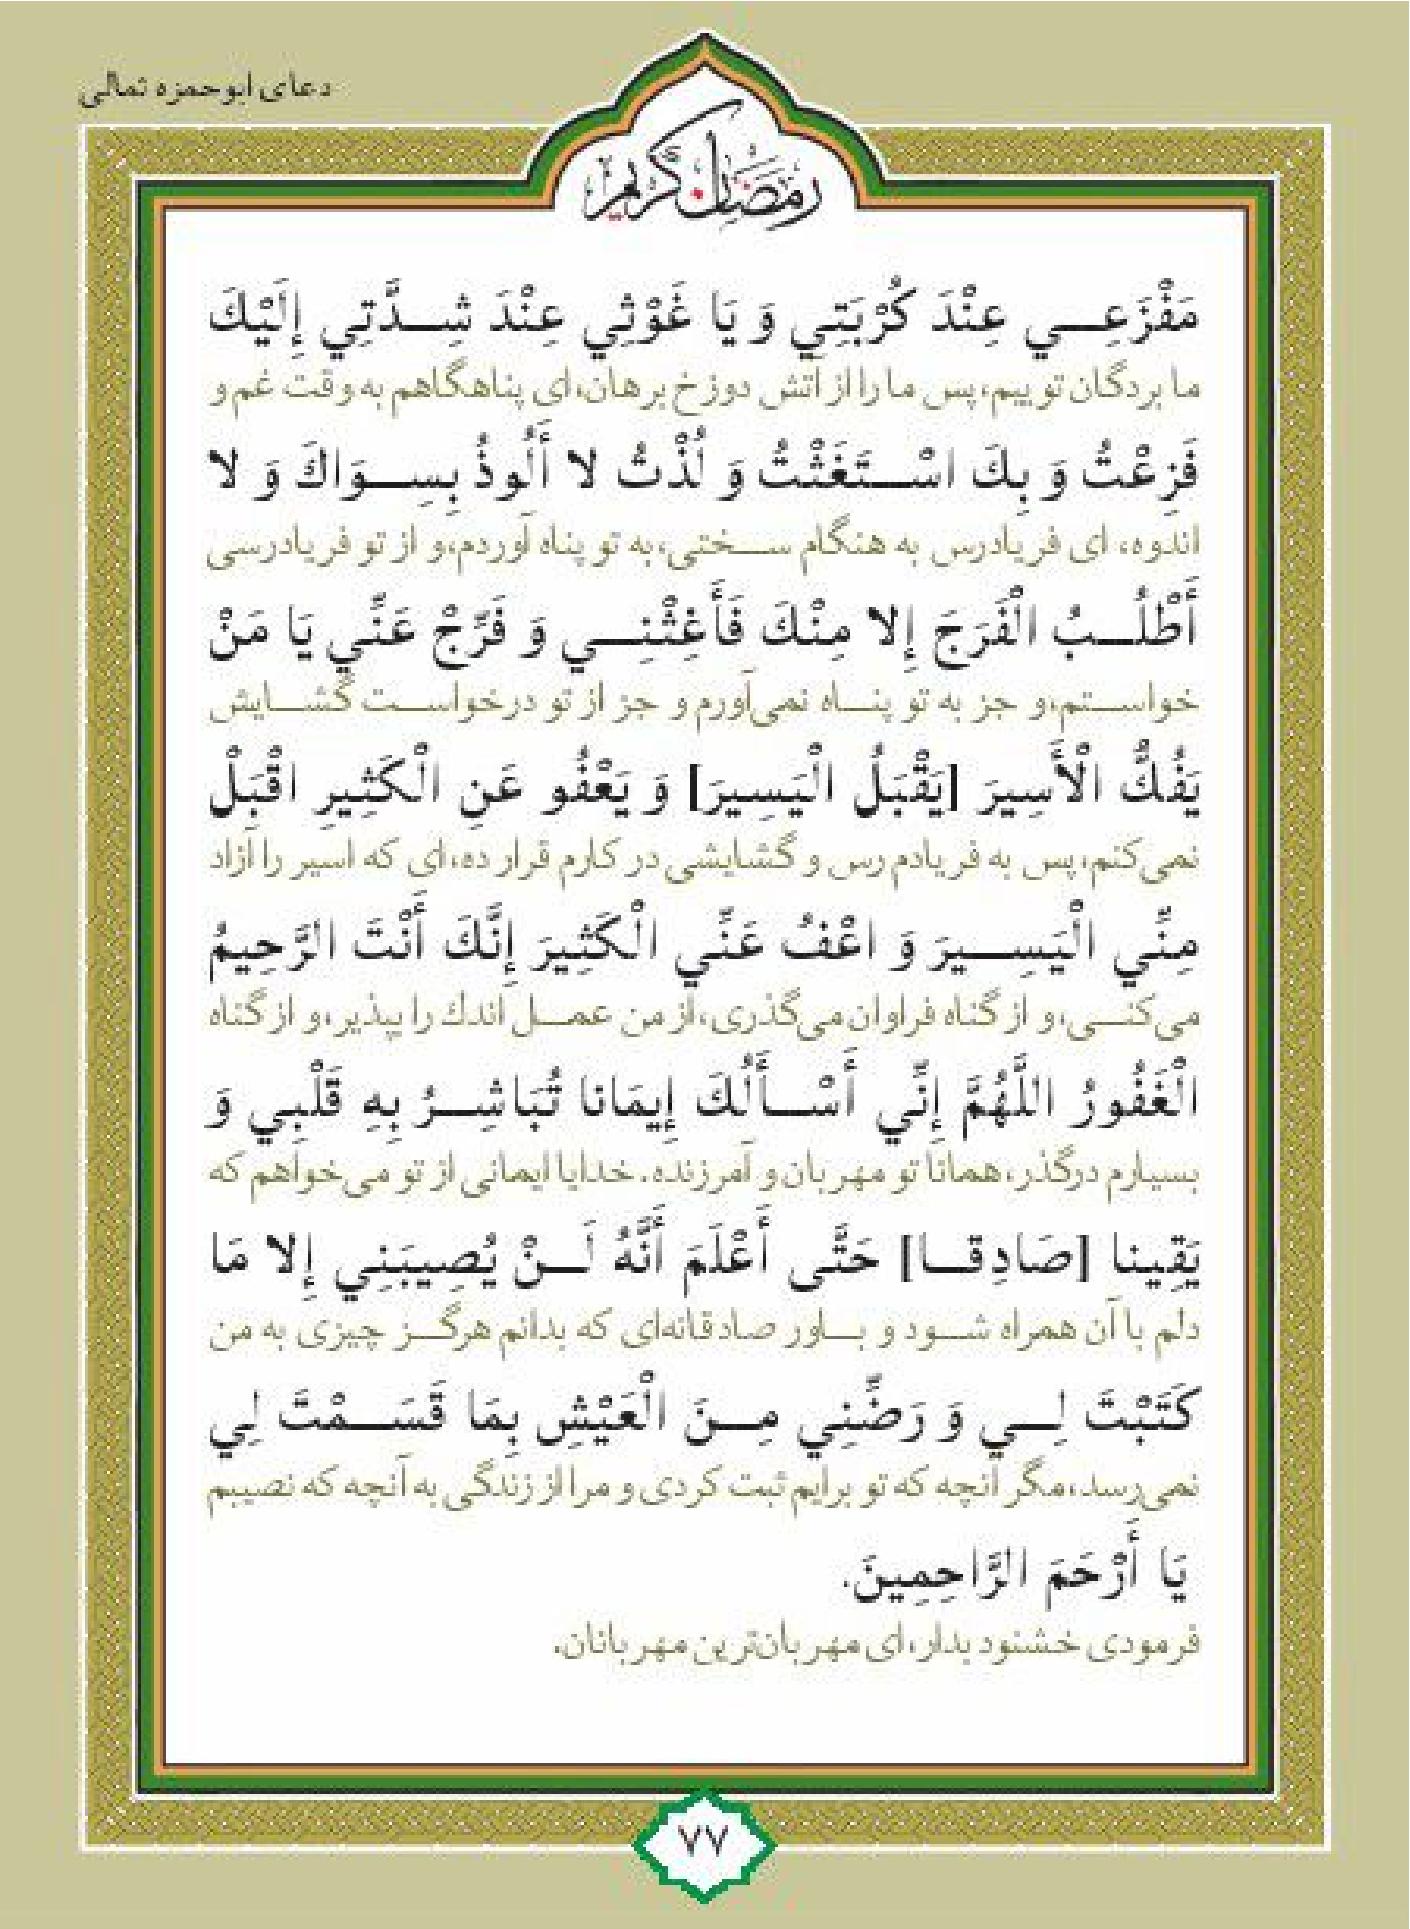 دعای ابوحمزه ثمالی
رمضان کریم
مَفْزَعِـــي عِنْدَ كُرْبَتِي وَ يَا غَوْثِي عِنْدَ شِـــدَّتِي إِلَيْكَ
ما بردگان توییم،پس ما را از آتش دوزخ برهان،ای پناهگاهم به وقت غم و
فَزِعْتُ وَ بِكَ اسْـــتَغَثْتُ وَ لُذْتُ لا أَلُوذُ بِسِـــوَاكَ وَ لا
اندوه، ای فریادرس به هنگام ســـختی،به تو پناه آوردم،و از تو فریادرسی
أَطْلُـــبُ الْفَرَجَ إِلا مِنْكَ فَأَغِثْنِـــي وَ فَرِّجْ عَنِّي يَا مَنْ
خواســـتم،و جز به تو پنـــاه نمی‌آورم و جز از تو درخواســـت گشـــایش
يَفُكُّ الْأَسِيرَ [يَقْبَلُ الْيَسِيرَ] وَ يَعْفُو عَنِ الْكَثِيرِ اقْبَلْ
نمی‌کنم،پس به فریادم رس و گشایشی در کارم قرار ده،ای که اسیر را آزاد
مِنِّي الْيَسِـــيرَ وَ اعْفُ عَنِّي الْكَثِيرَ إِنَّكَ أَنْتَ الرَّحِيمُ
می‌کنـــی،و از گناه فراوان می‌گذری،از من عمـــل اندك را بپذیر،و از گناه
الْغَفُورُ اللَّهُمَّ إِنِّي أَسْـــأَلُكَ إِيمَانا تُبَاشِـــرُ بِهِ قَلْبِي وَ
بسیارم درگذر،همانا تو مهربان و آمرزنده. خدایا ایمانی از تو می‌خواهم که
يَقِينا [صَادِقـــا] حَتَّى أَعْلَمَ أَنَّهُ لَـــنْ يُصِيبَنِي إِلا مَا
دلم با آن همراه شـــود و بـــاور صادقانه‌ای که بدانم هرگـــز چیزی به من
كَتَبْتَ لِـــي وَ رَضِّنِي مِـــنَ الْعَيْشِ بِمَا قَسَـــمْتَ لِي
نمی‌رسد،مگر آنچه که تو برایم ثبت کردی و مرا از زندگی به آنچه که نصیبم
يَا أَرْحَمَ الرَّاحِمِينَ.
فرمودی خشنود بدار،ای مهربان‌ترین مهربانان.
٧٧